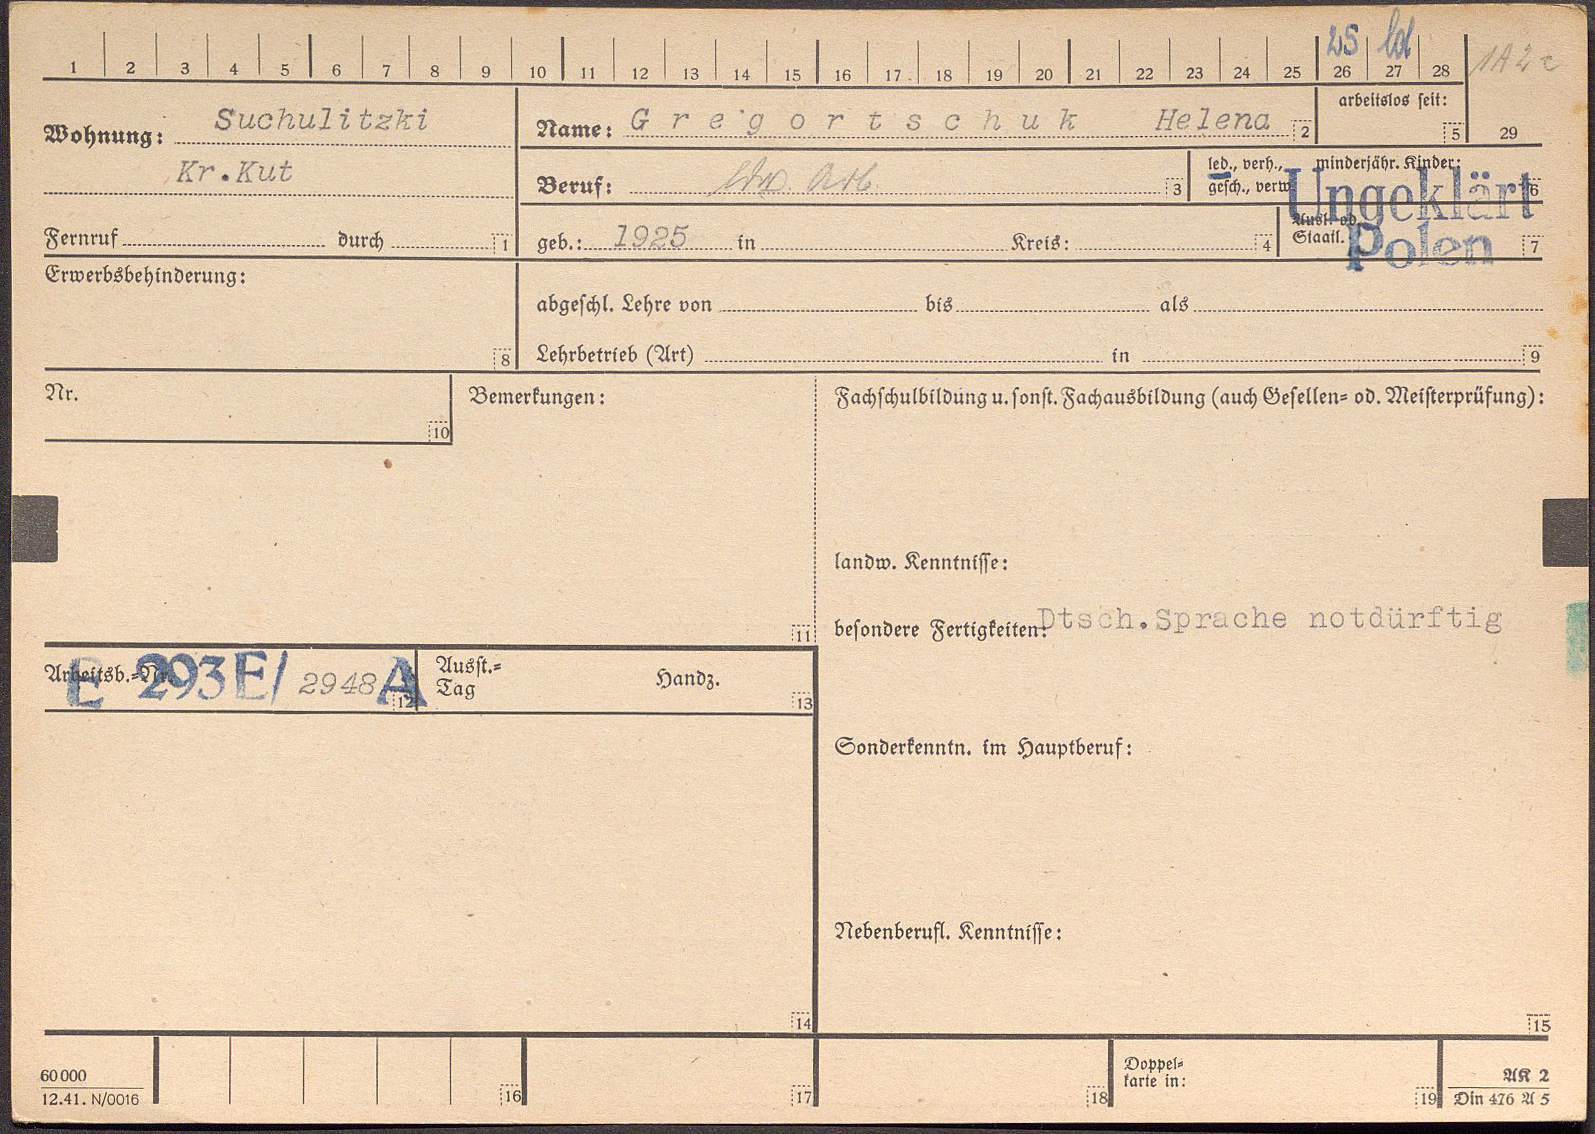 1 2 3 4 5 6 7 8 9 10 11 12 13 14 15 16 17 18 19 20 21 22 23 24 25 26 27 28
1A2c
Wohnung: Suchulitzki
Kr.Kut
Fernruf durch 1
Name: Gregortschuk Helena 2
arbeitslos seit: 5
29
Beruf: Ldw. Arb. 3
led., verh., gesch., verw.
minderjähr. Kinder: 6
geb.: 1925 in Kreis: 4
Ausl. od. Staatl. 7
Ungeklärt
Polen
Erwerbsbehinderung: 8
abgeschl. Lehre von bis als
Lehrbetrieb (Art) in 9
Nr. 10
Bemerkungen: 11
Fachschulbildung u. sonst. Fachausbildung (auch Gesellen- od. Meisterprüfung):
landw. Kenntnisse:
besondere Fertigkeiten: Dtsch.Sprache notdürftig
Arbeitsb.-Nr. E 293E/ 2948 A 12
Ausst.-Tag Handz. 13
Sonderkenntn. im Hauptberuf:
Nebenberufl. Kenntnisse:
14 15
60000
12.41. N/0016
16 17 18
Doppel-
karte in: 19
AK 2
Din 476 A 5